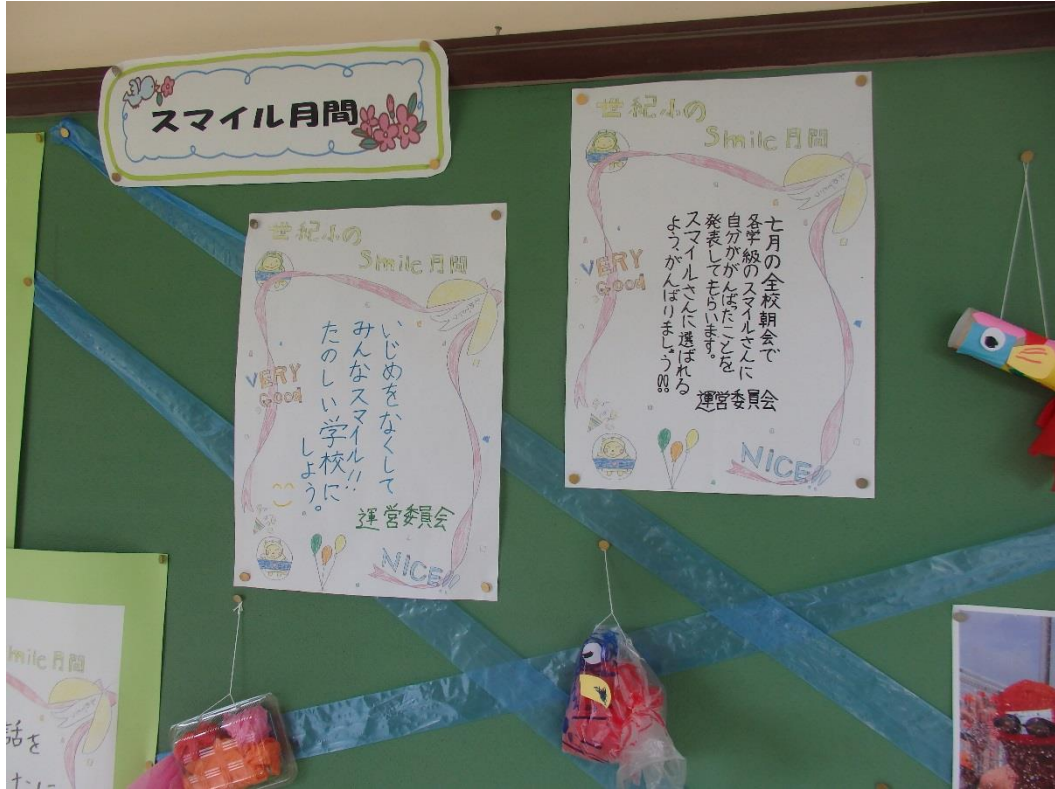 スマイル月間
世紀小の
Smile 月間
VERY
Good
いじめをなくして
みんなスマイル!!
たのしい学校に
しよう。
運営委員会
NICE!!
世紀小の
Smile 月間
VERY
Good
七月の全校朝会で
各学級のスマイルさんに
自分ががんばったことを
発表してもらいます。
スマイルさんに選ばれる
よう、がんばりましょう!!
運営委員会
NICE!!
mile 月間
話を